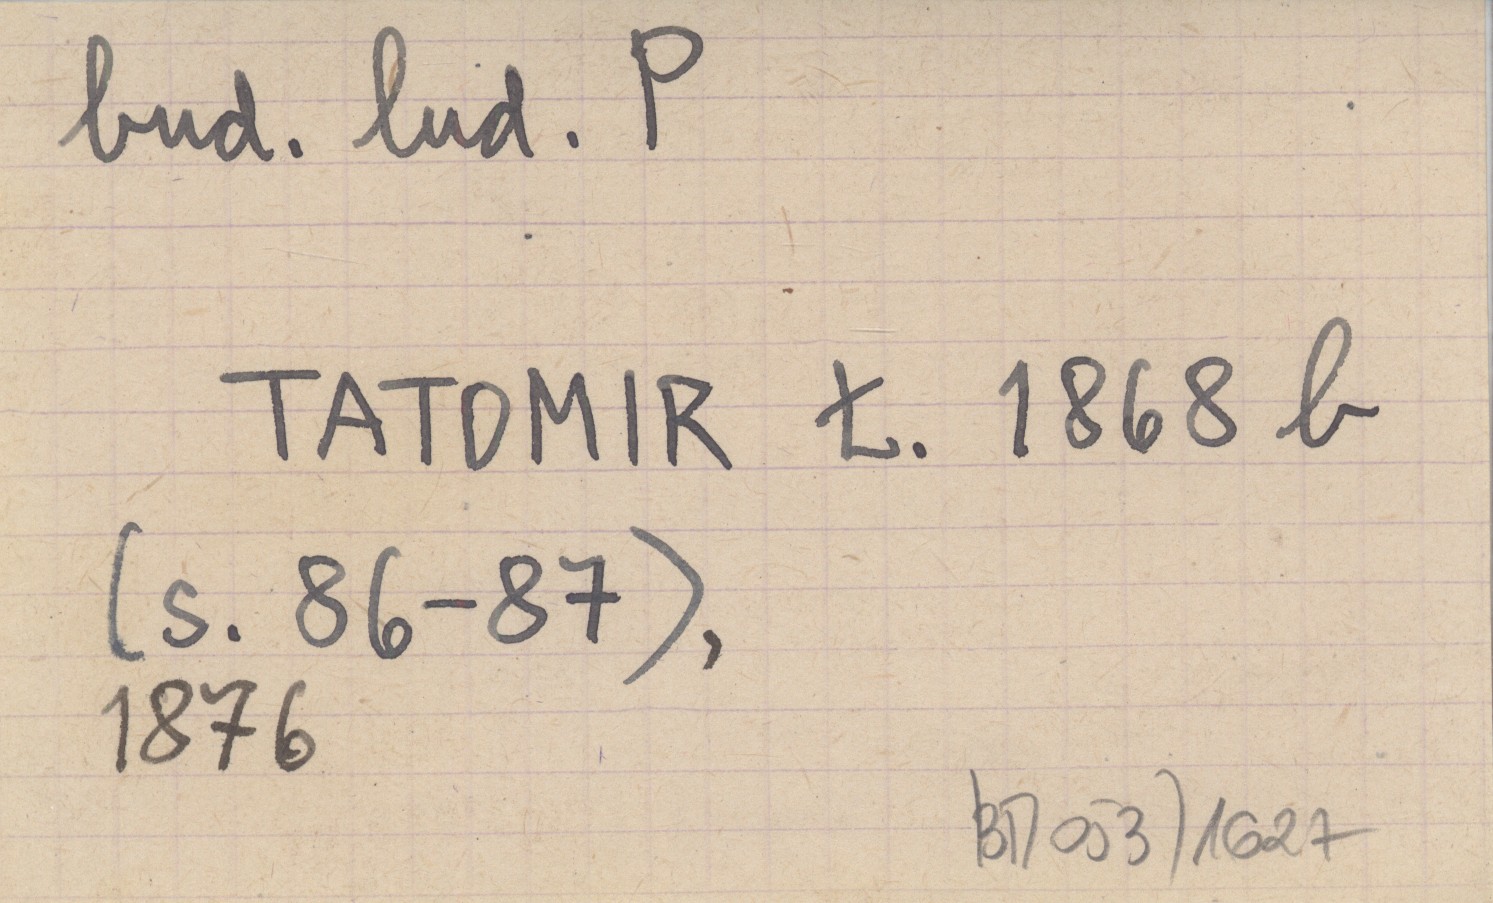 bud. lud. P
TATOMIR Ł. 1868 b
(s. 86-87),
1876
1627